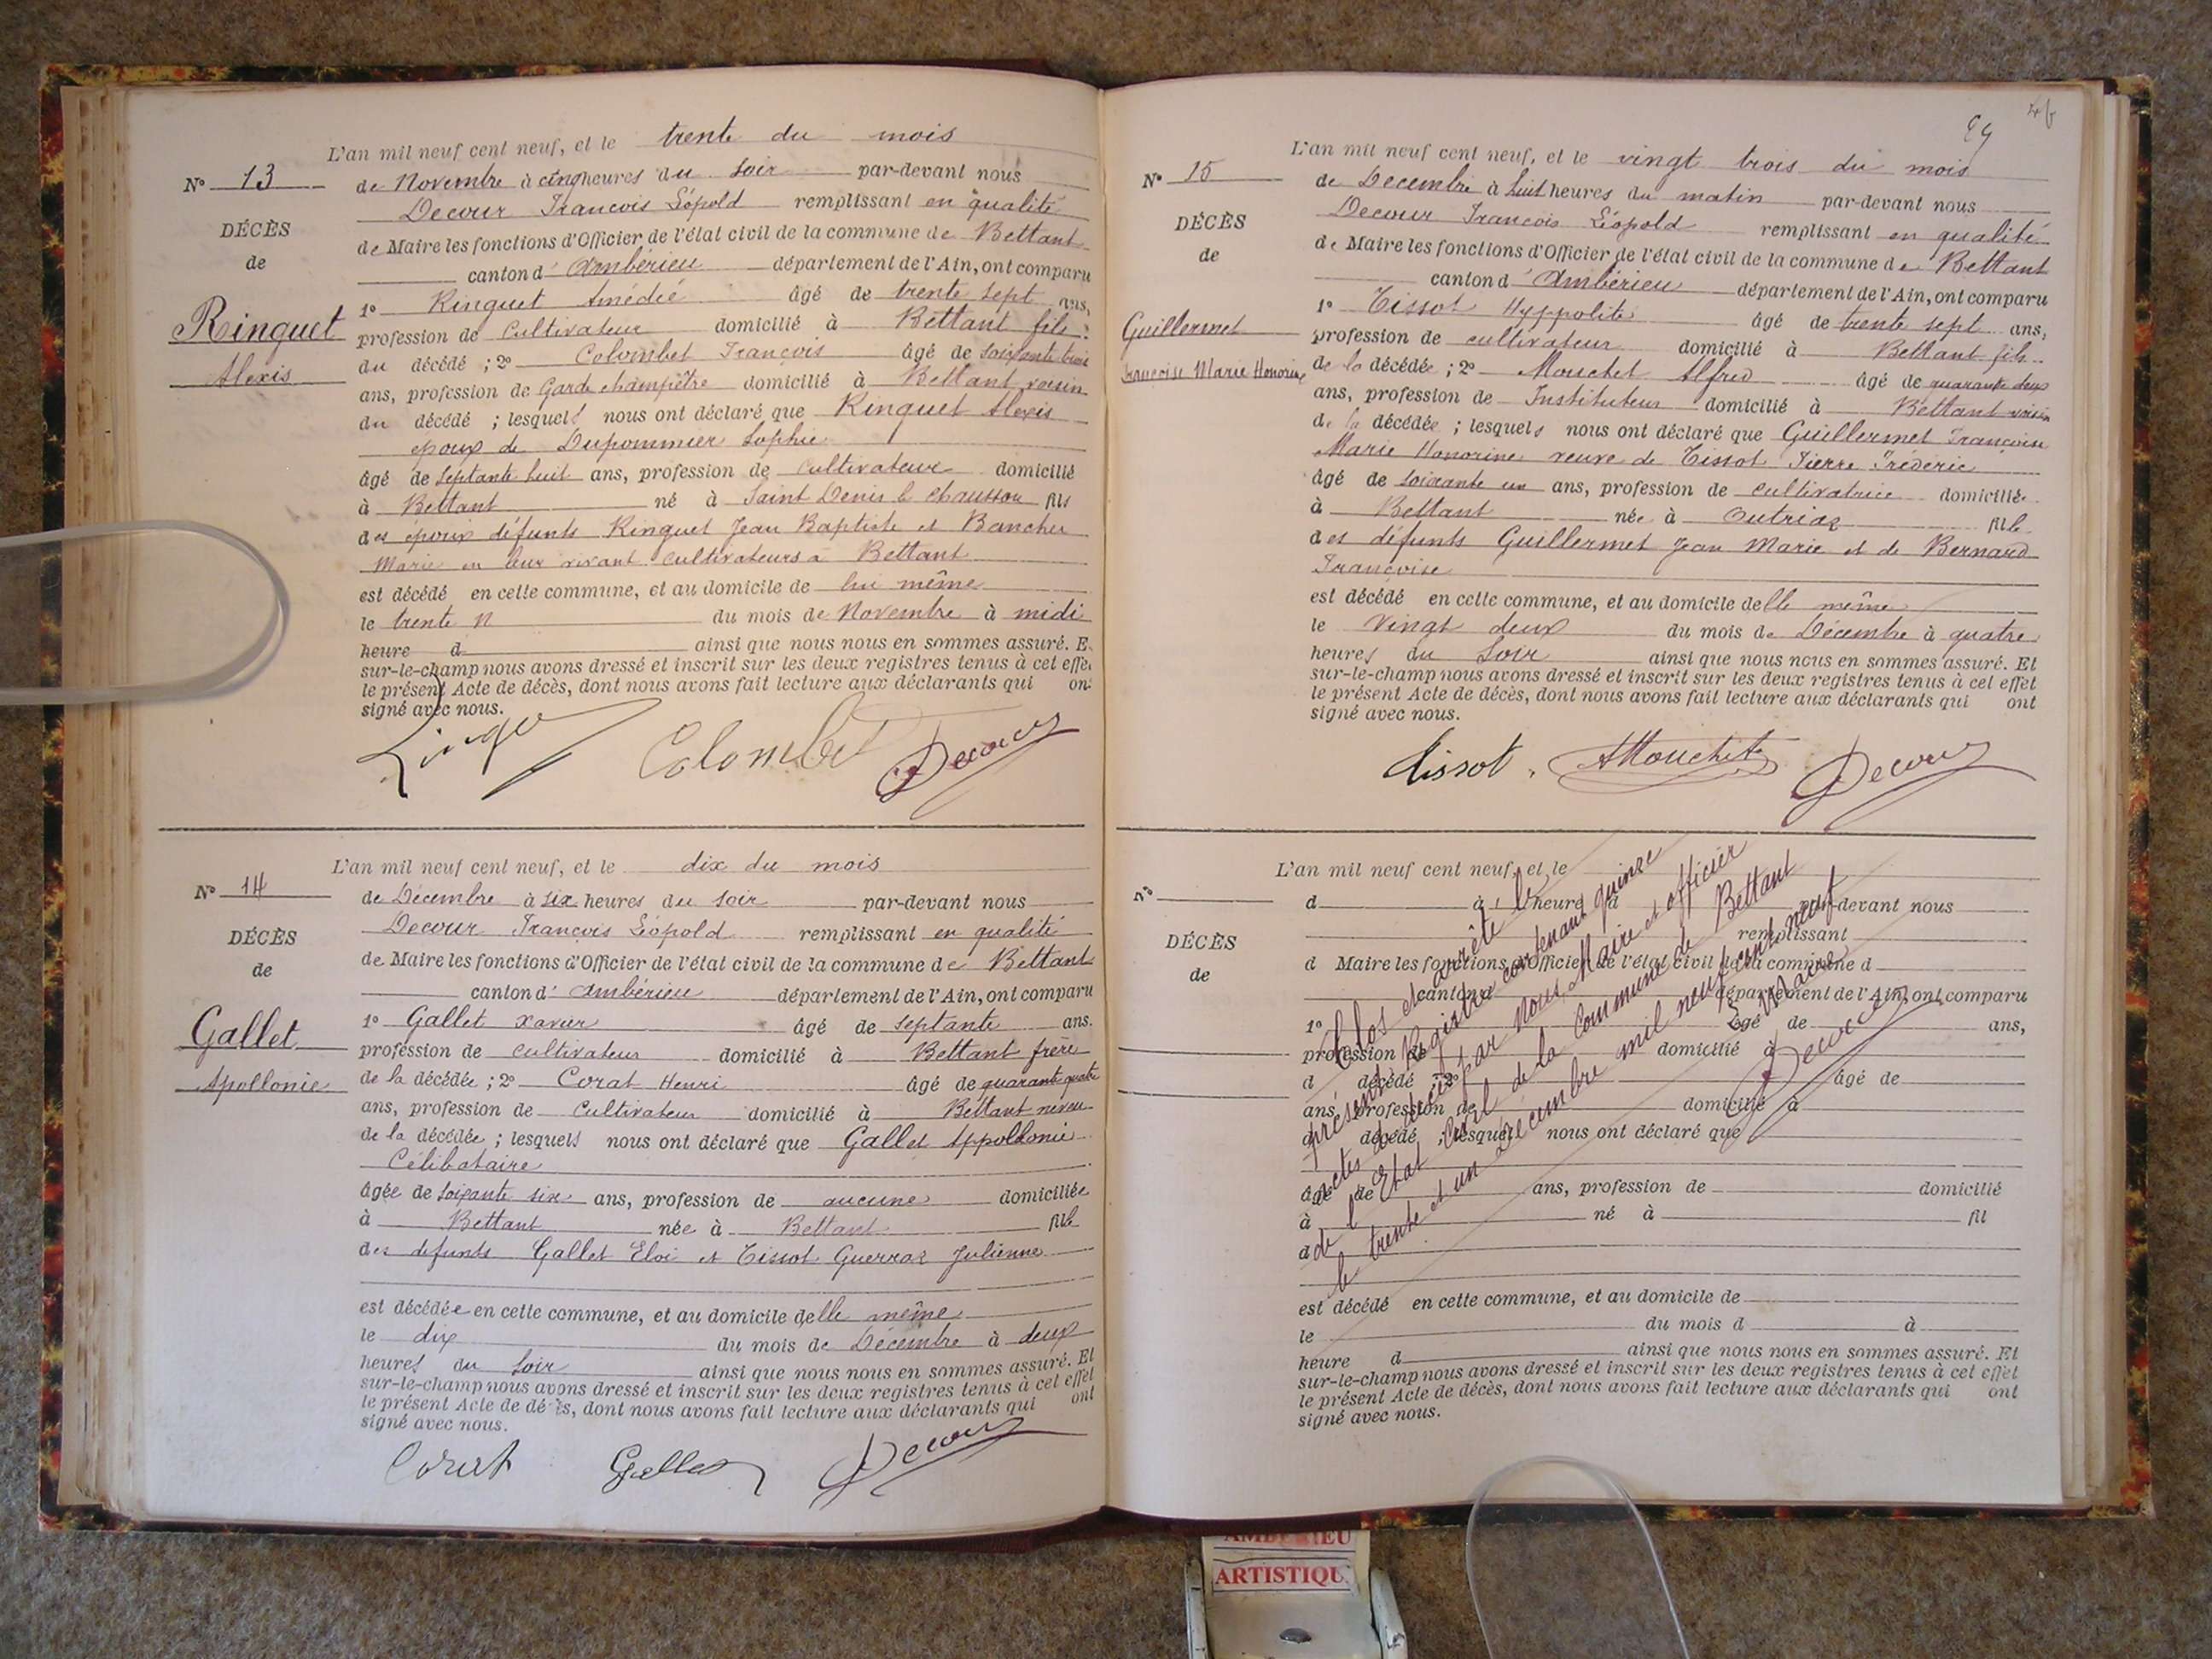 L'an mil neuf cent neuf, et le trente du mois
N° 13
de Novembre à cinq heures du soir par-devant nous
Decour François Léopold remplissant en qualité
DÉCÈS
de Maire les fonctions d'Officier de l'état civil de la commune de Bettant
de
canton d'Ambérieu département de l'Ain, ont comparu
1° Rinquet Amédié âgé de trente sept ans,
Rinquet
profession de cultivateur domicilié à Bettant fils
du décédé ; 2° Colombet François âgé de soixante trois
Alexis
ans, profession de Garde champêtre domicilié à Bettant voisin
du décédé ; lesquels nous ont déclaré que Rinquet Alexis
époux de Dupommier Sophie
âgé de septante huit ans, profession de cultivateur domicilié
à Bettant né à Saint Denis le Chausson fils
des époux défunts Rinquet Jean Baptiste et Bancher
Marie en leur vivant cultivateurs à Bettant
est décédé en cette commune, et au domicile de lui même
le trente du mois de Novembre à midi
heure d ainsi que nous nous en sommes assuré. E
sur-le-champ nous avons dressé et inscrit sur les deux registres tenus à cet effe
le présent Acte de décès, dont nous avons fait lecture aux déclarants qui on
signé avec nous.
Colombet Decour
L'an mil neuf cent neuf, et le dix du mois
N° 14
de Décembre à six heures du soir par-devant nous
Decour François Léopold remplissant en qualité
DÉCÈS
de Maire les fonctions d'Officier de l'état civil de la commune de Bettant
de
canton d'Ambérieu département de l'Ain, ont comparu
1° Gallet Xavier âgé de septante ans.
Gallet
profession de cultivateur domicilié à Bettant frère
Apollonie
de la décédée ; 2° Corat Henri âgé de quarante quatre
ans, profession de cultivateur domicilié à Bettant neveu
de la décédée ; lesquels nous ont déclaré que Gallet Appollonie
Célibataire
âgée de soixante six ans, profession de aucune domiciliée
à Bettant née à Bettant fille
des défunts Gallet Eloi et Tissot Guerraz Julienne
est décédée en cette commune, et au domicile delle même
le dix du mois de Décembre à deux
heures du soir ainsi que nous nous en sommes assuré. Et
sur-le-champ nous avons dressé et inscrit sur les deux registres tenus à cet effet
le présent Acte de décès, dont nous avons fait lecture aux déclarants qui ont
signé avec nous.
Corat Gallet Decour
L'an mil neuf cent neuf, et le vingt trois du mois
N° 15
de Décembre à huit heures du matin par-devant nous
Decour François Léopold remplissant en qualité
DÉCÈS
de Maire les fonctions d'Officier de l'état civil de la commune de Bettant
de
canton d'Ambérieu département de l'Ain, ont comparu
1° Tissot Hyppolite âgé de trente sept ans,
Guillermet
profession de cultivateur domicilié à Bettant fils
Françoise Marie Honorine
de la décédée ; 2° Mouchet Alfred âgé de quarante deux
ans, profession de Instituteur domicilié à Bettant voisin
de la décédée ; lesquels nous ont déclaré que Guillermet Françoise
Marie Honorine veuve de Tissot Pierre Fréderic
âgé de soixante un ans, profession de cultivatrice domiciliée
à Bettant née à Outriaz fille
des défunts Guillermet Jean Marie et de Bernard
Françoise
est décédé en cette commune, et au domicile delle même
le Vingt deux du mois de Décembre à quatre
heures du soir ainsi que nous nous en sommes assuré. Et
sur-le-champ nous avons dressé et inscrit sur les deux registres tenus à cet effet
le présent Acte de décès, dont nous avons fait lecture aux déclarants qui ont
signé avec nous.
Tissot. AMouchet Decour
L'an mil neuf cent neuf, et le
N°
d à heure d par-devant nous
remplissant
DÉCÈS
d Maire les fonctions d'Officier de l'état civil de la commune d
de
canton d département de l'Ain, ont comparu
1° âgé de ans,
profession de domicilié à
d décédé ; 2° âgé de
ans, profession de domicilié à
d décédé ; lesquels nous ont déclaré que
âgé de ans, profession de domicilié
à né à fil
d
est décédé en cette commune, et au domicile de
le du mois d à
heure d ainsi que nous nous en sommes assuré. Et
sur-le-champ nous avons dressé et inscrit sur les deux registres tenus à cet effet
le présent Acte de décès, dont nous avons fait lecture aux déclarants qui ont
signé avec nous.
Clos et arrêté le
présent Registre contenant quinze
actes de décès par nous, Maire et officier
de l'Etat civil de la Commune de Bettant
le trente et un Décembre mil neuf cent neuf
Le Maire
Decour
AMBERIEU
ARTISTIQU